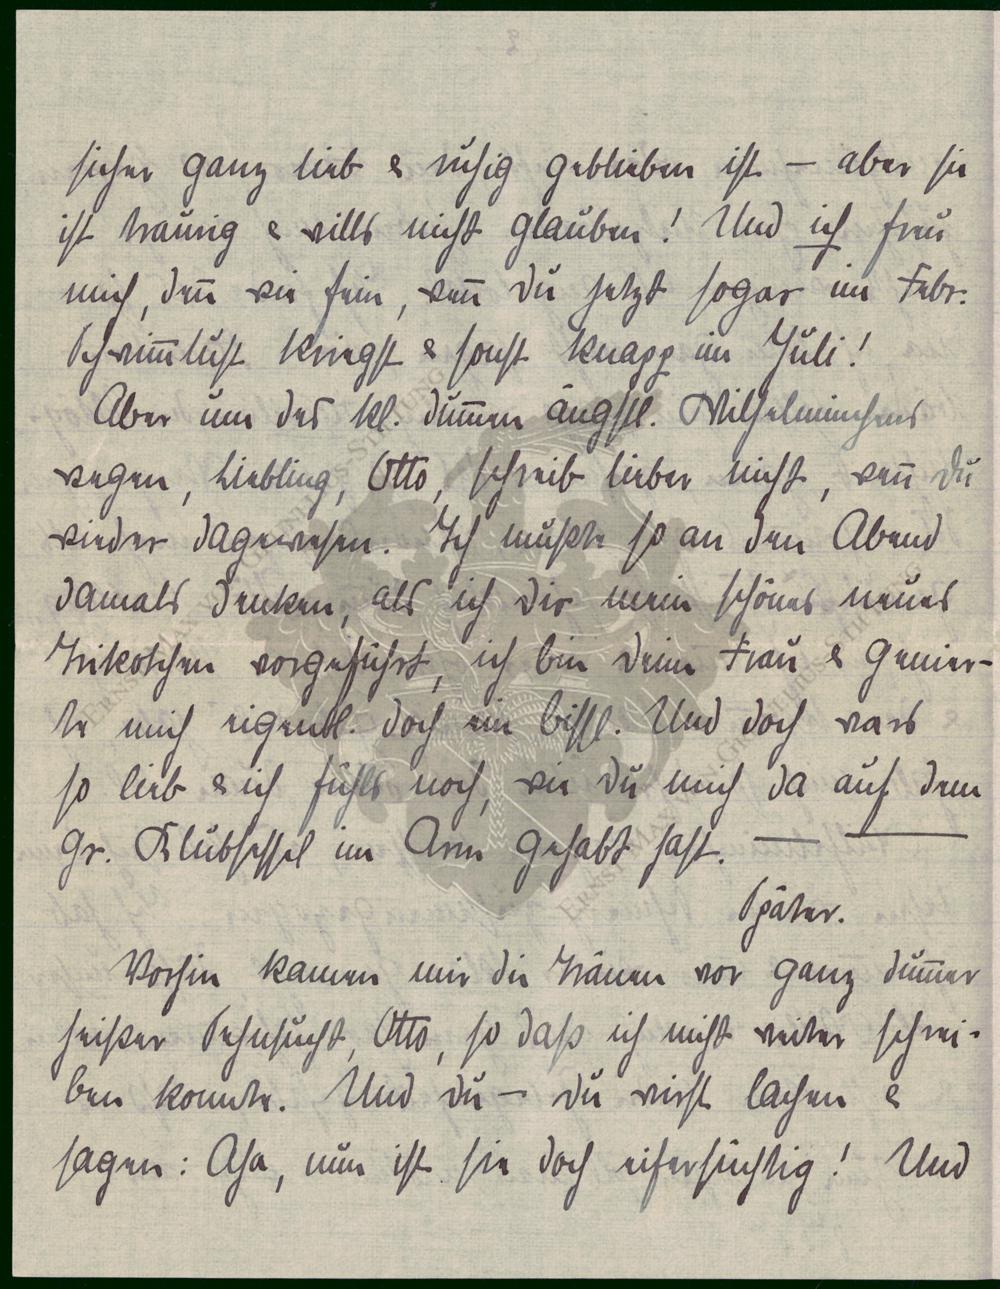 sicher ganz lieb & ruhig geblieben ist – aber sie
ist traurig & wills nicht glauben! Und ich freu
mich, den̅ wie fein, wen̅ du jetzt sogar im Febr.
Schwim̅lust kriegst & sonst knapp im Juli!
Aber um des kl. dum̅en ängstl. Wilhelminchens
wegen, Liebling, Otto, schreib lieber nicht, wen̅ du
wieder dagewesen. Ich mußte so an den Abend
damals denken, als ich dir mein schönes neues
Trikotchen vorgeführt, ich bin deine Frau & genier-
te mich eigentl. doch ein bissl. Und doch wars
so lieb & ich fühls noch, wie du mich da auf dem
gr. Klubsessel im Arm gehabt hast. — —
Später.
Vorhin kamen mir die Tränen vor ganz dum̅er
heißer Sehnsucht, Otto, so daß ich nicht weiter schrei-
ben konnte. Und du – du wirst lachen &
sagen: Aha, nun ist sie doch eifersüchtig! Und
ERNST MAX VON GRUNELIUS-STIFTUNG
ERNST MAX VON GRUNELIUS-STIFTUNG